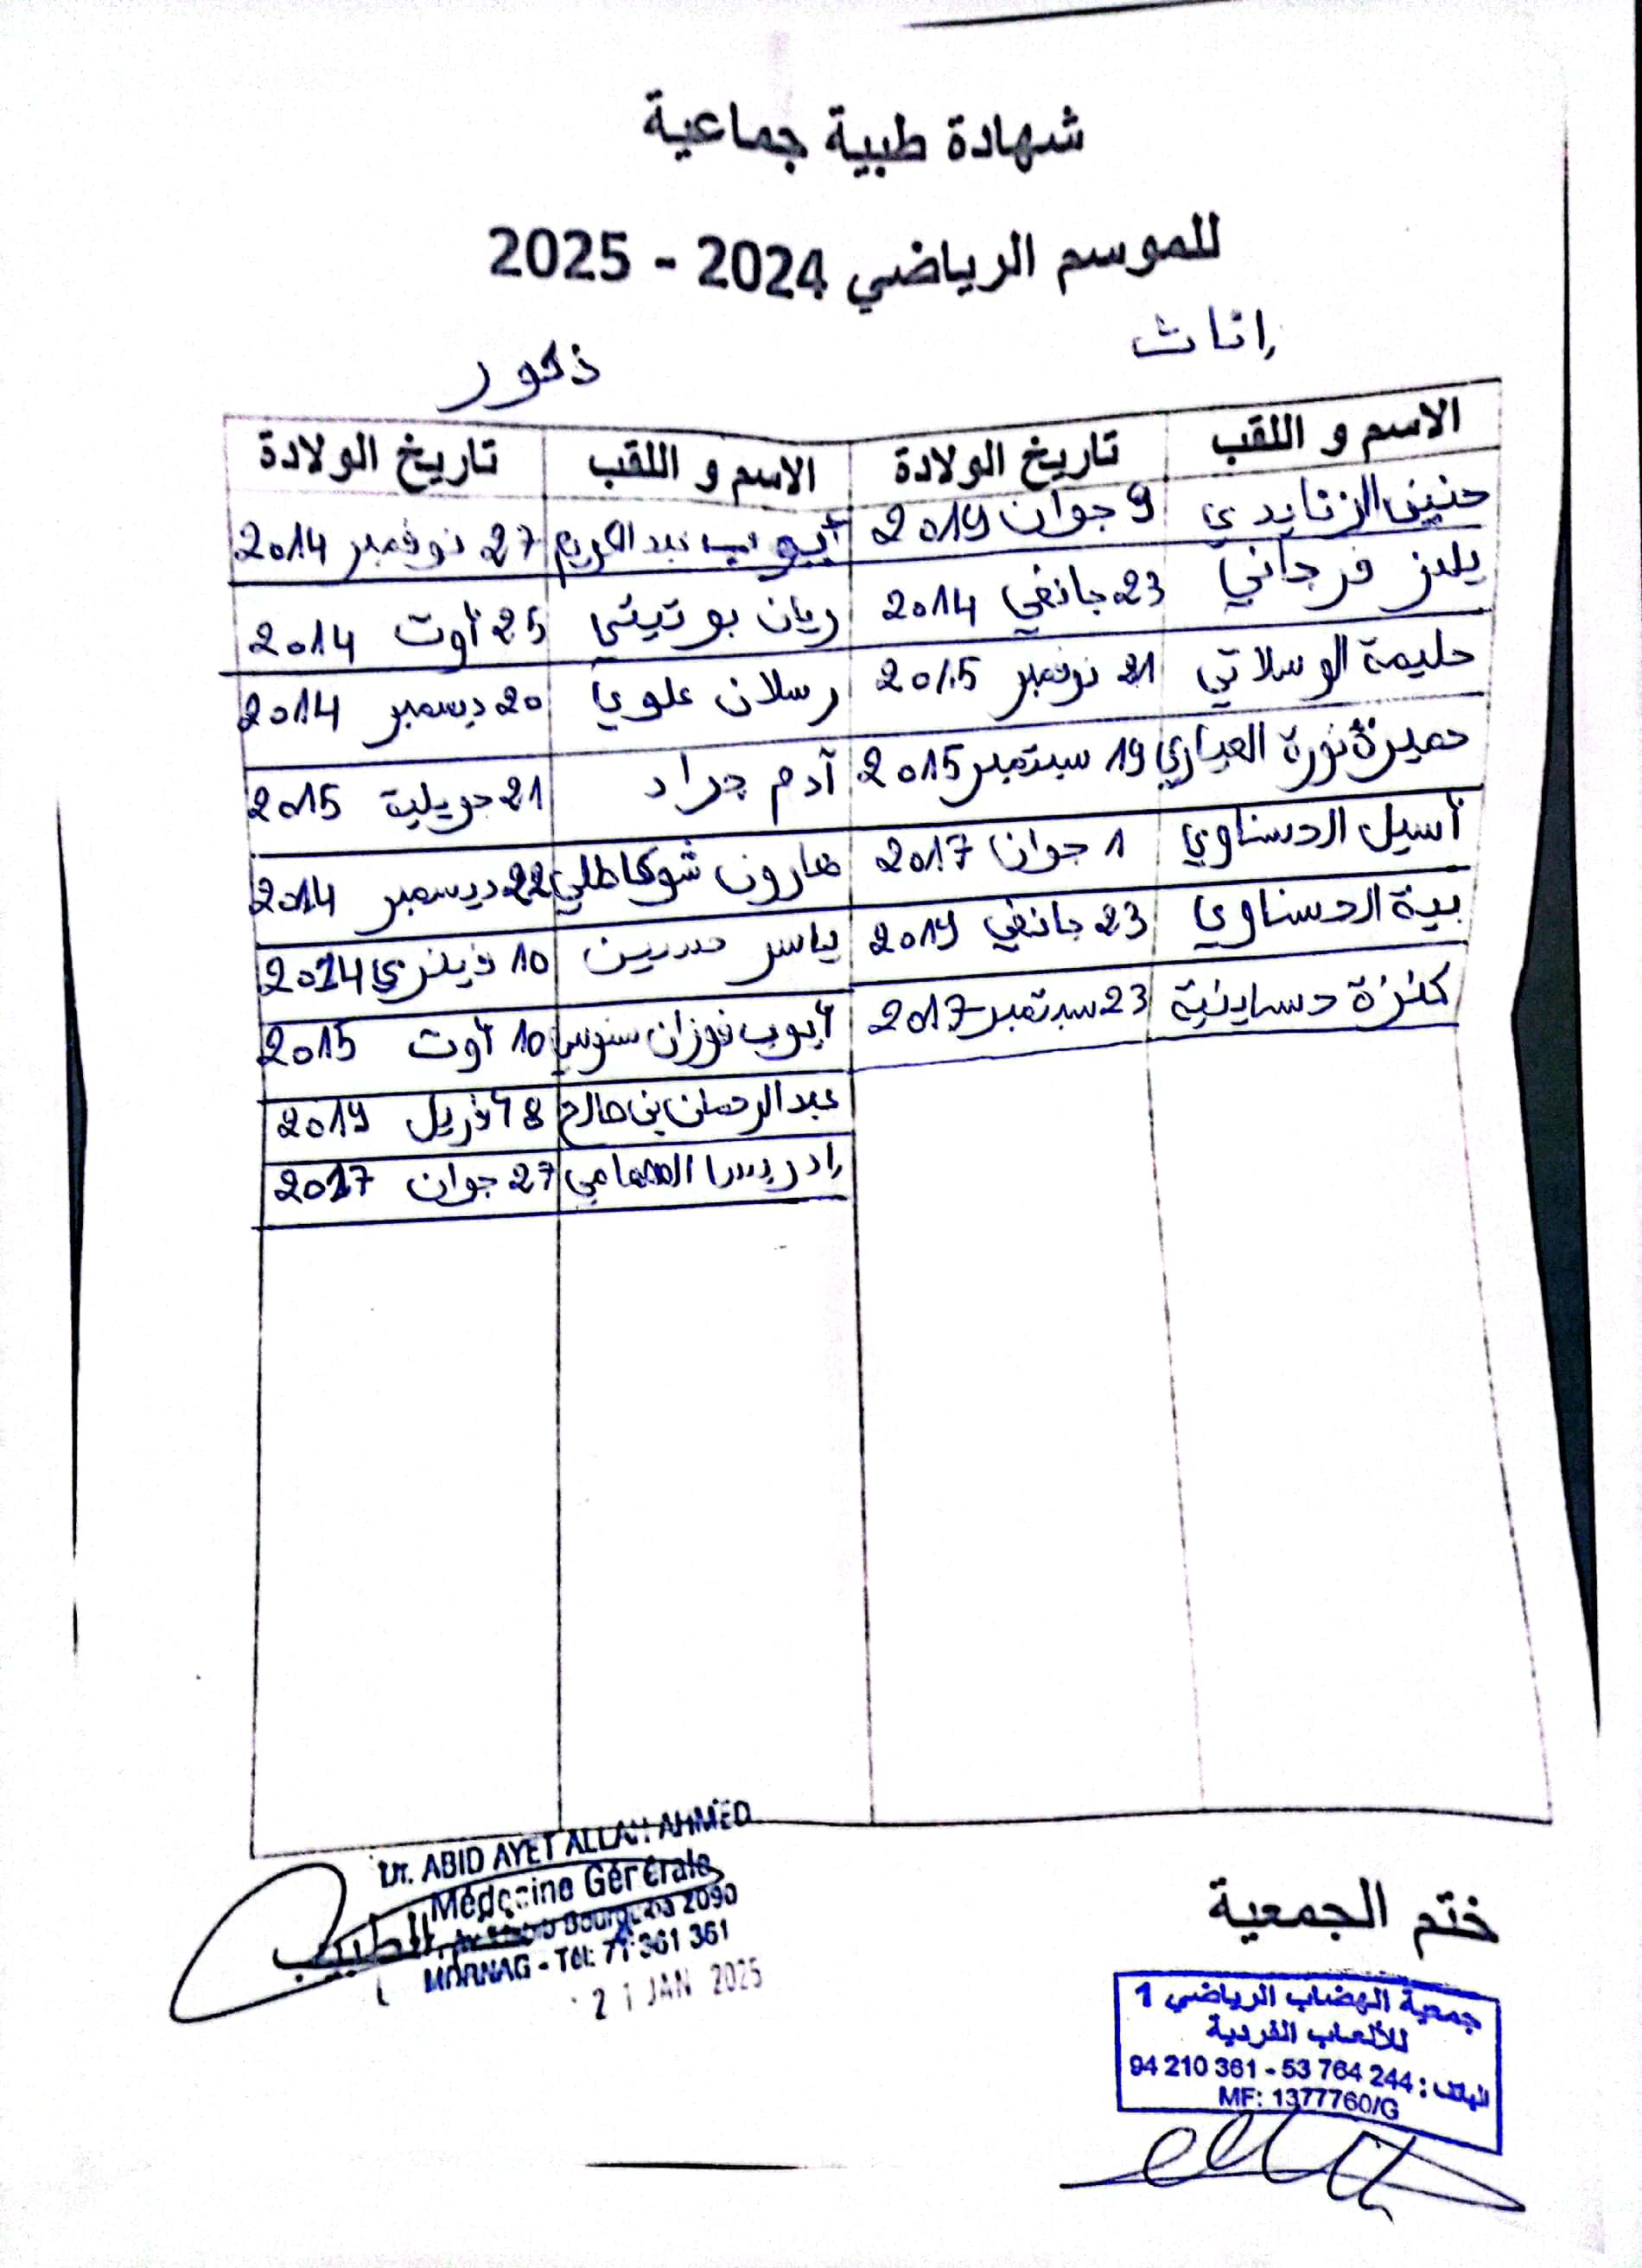 شهادة طبية جماعية
للموسم الرياضي 2024 - 2025
إناث ذكور
الاسم و اللقب تاريخ الولادة الاسم و اللقب تاريخ الولادة
حنين الزنايدي 9 جوان 2019 أيوب عبد الكريم 27 نوفمبر 2014
يلدز فرجاني 23 جانفي 2014 ريان بوتيتي 25 أوت 2014
حليمة الوسلاتي 21 نوفمبر 2015 رسلان علوي 20 ديسمبر 2014
نورة العياري 19 سبتمبر 2015 آدم جراد 21 جويلية 2015
أسيل الحسناوي 1 جوان 2017 هارون 22 ديسمبر 2014
بية الحسناوي 23 جانفي 2019 ياسر حسين 10 فيفري 2014
كنزة حساينية 23 سبتمبر 2017 أيوب فوزان سنوسي 10 أوت 2015
عبد الرحمان بن صالح 8 أفريل 2019
إدريس الهمامي 27 جوان 2017
Dr. ABID AYET ALLAH AHMED
Médecine Générale
Av. Habib Bourguiba 2090
MORNAG - Tél: 71 361 361
الطبيب
21 JAN 2025
ختم الجمعية
جمعية الهضاب الرياضي 1
للألعاب الفردية
الهاتف : 94 210 361 - 53 764 244
MF: 1377760/G